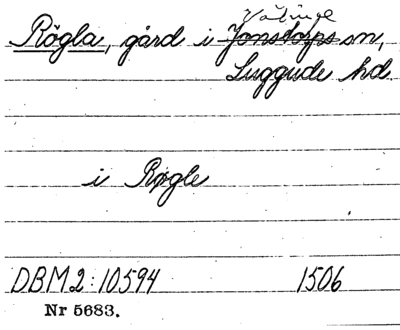 Välinge
Rögla, gård i Jonstorps sn,
Luggude hd
i Røgle
DBM 2:10594 1506
Nr 5683.